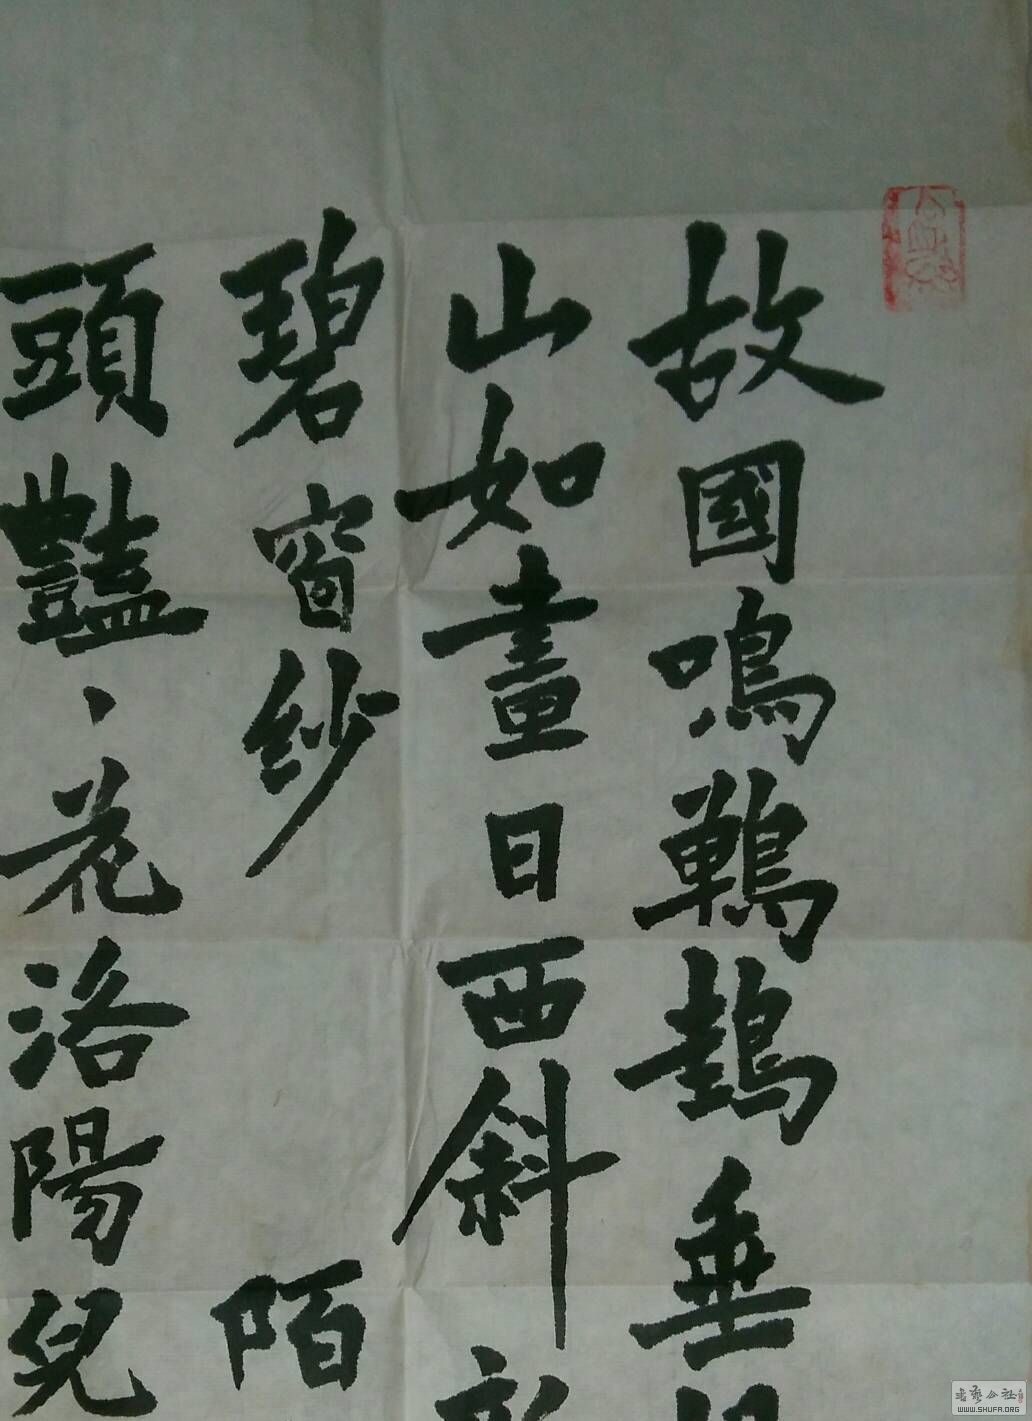 故國鳴鷤垂
山如畫日西斜
碧窗紗 陌
頭豔、花洛陽兒
WWW.SHUFA.ORG